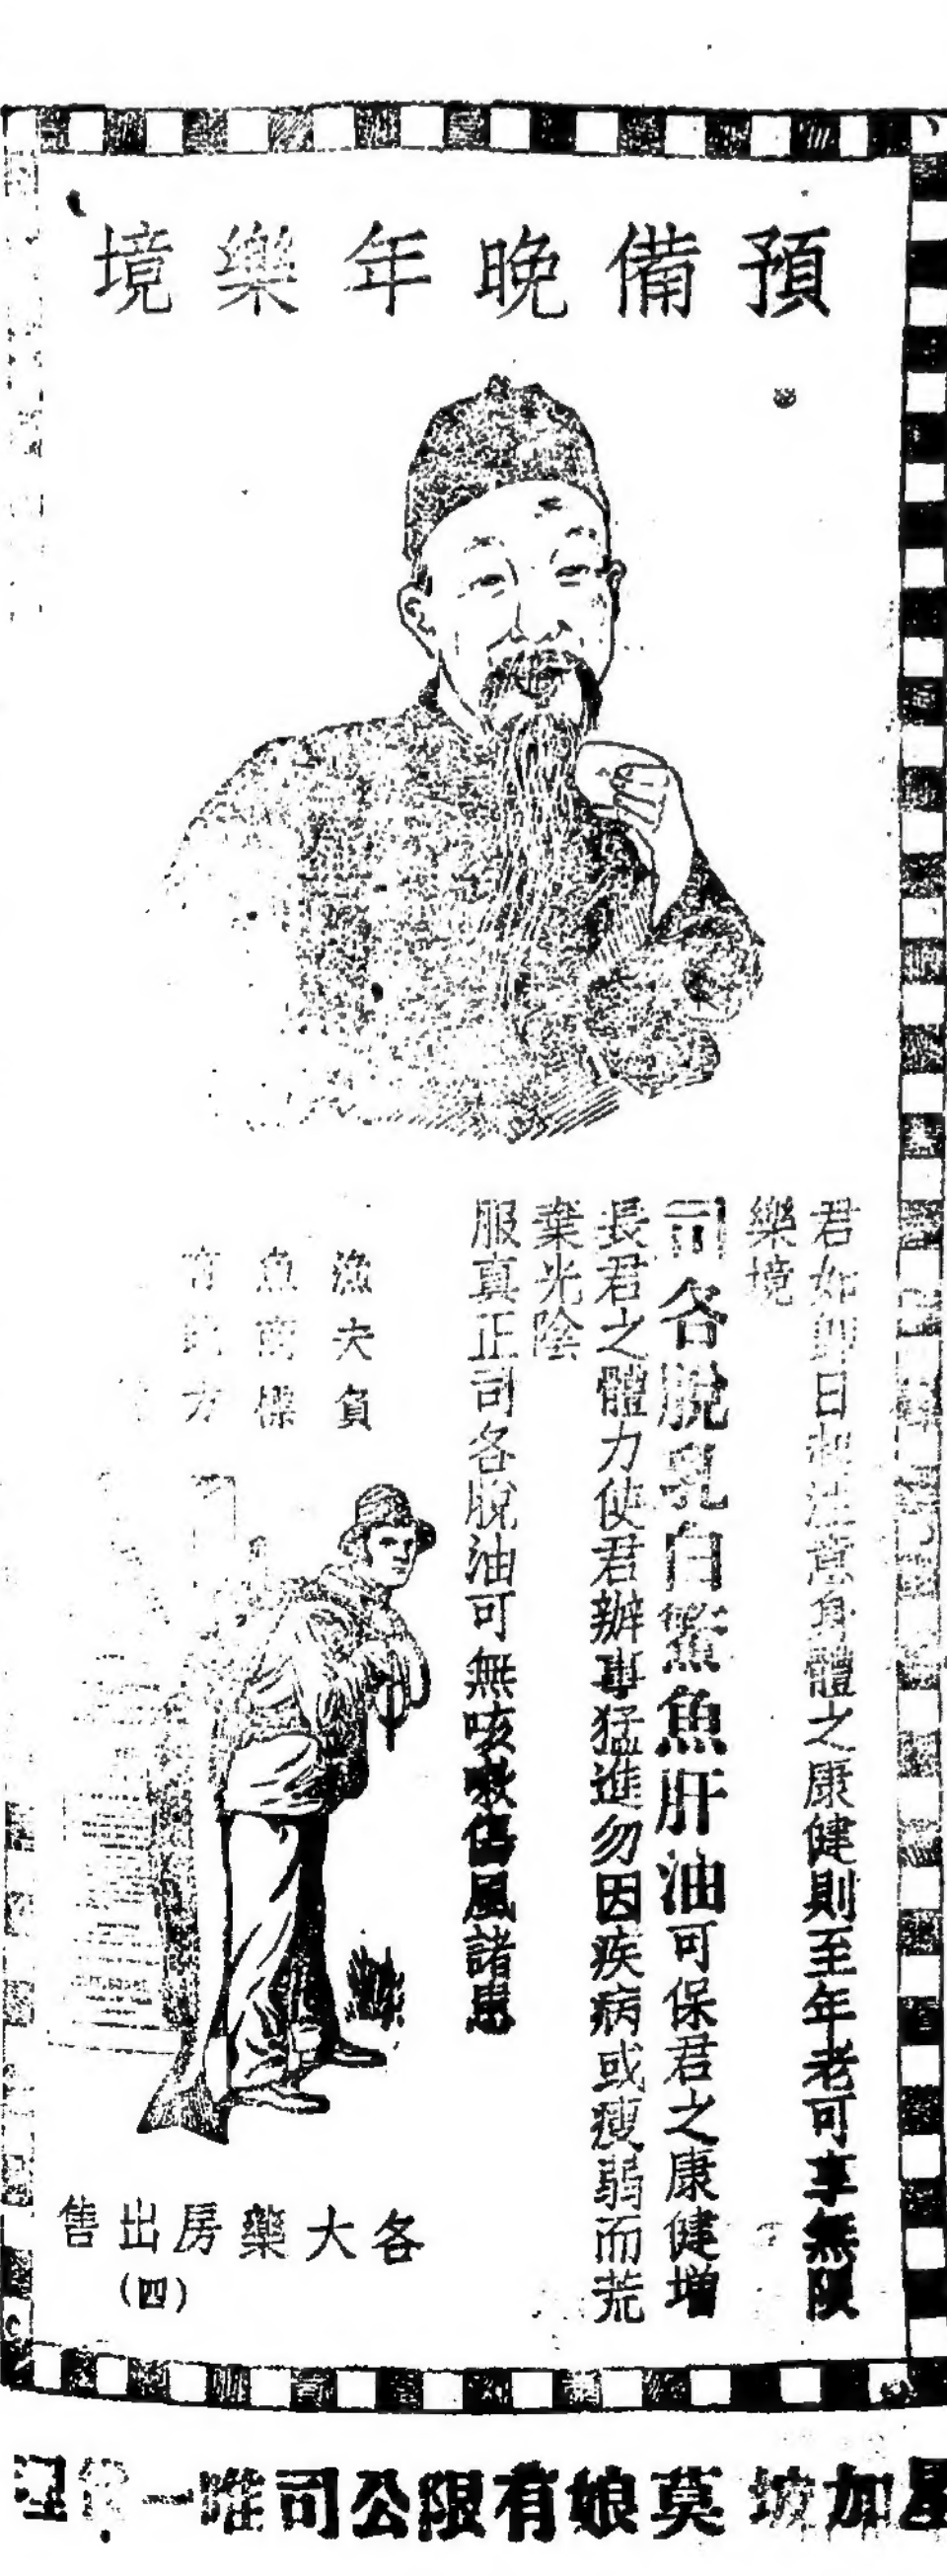 預備晚年樂境
君如卽日起注意身體之康健則至年老可享無限
樂境
司各脫乳白鰵魚肝油可保君之康健增
長君之體力使君辦事猛進勿因疾病或瘦弱而荒
棄光陰
服真正司各脫油可無咳嗽傷風諸患
漁夫負
魚商標
方
各大藥房出售
(四)
星加坡 莫娘有限公司唯一管理